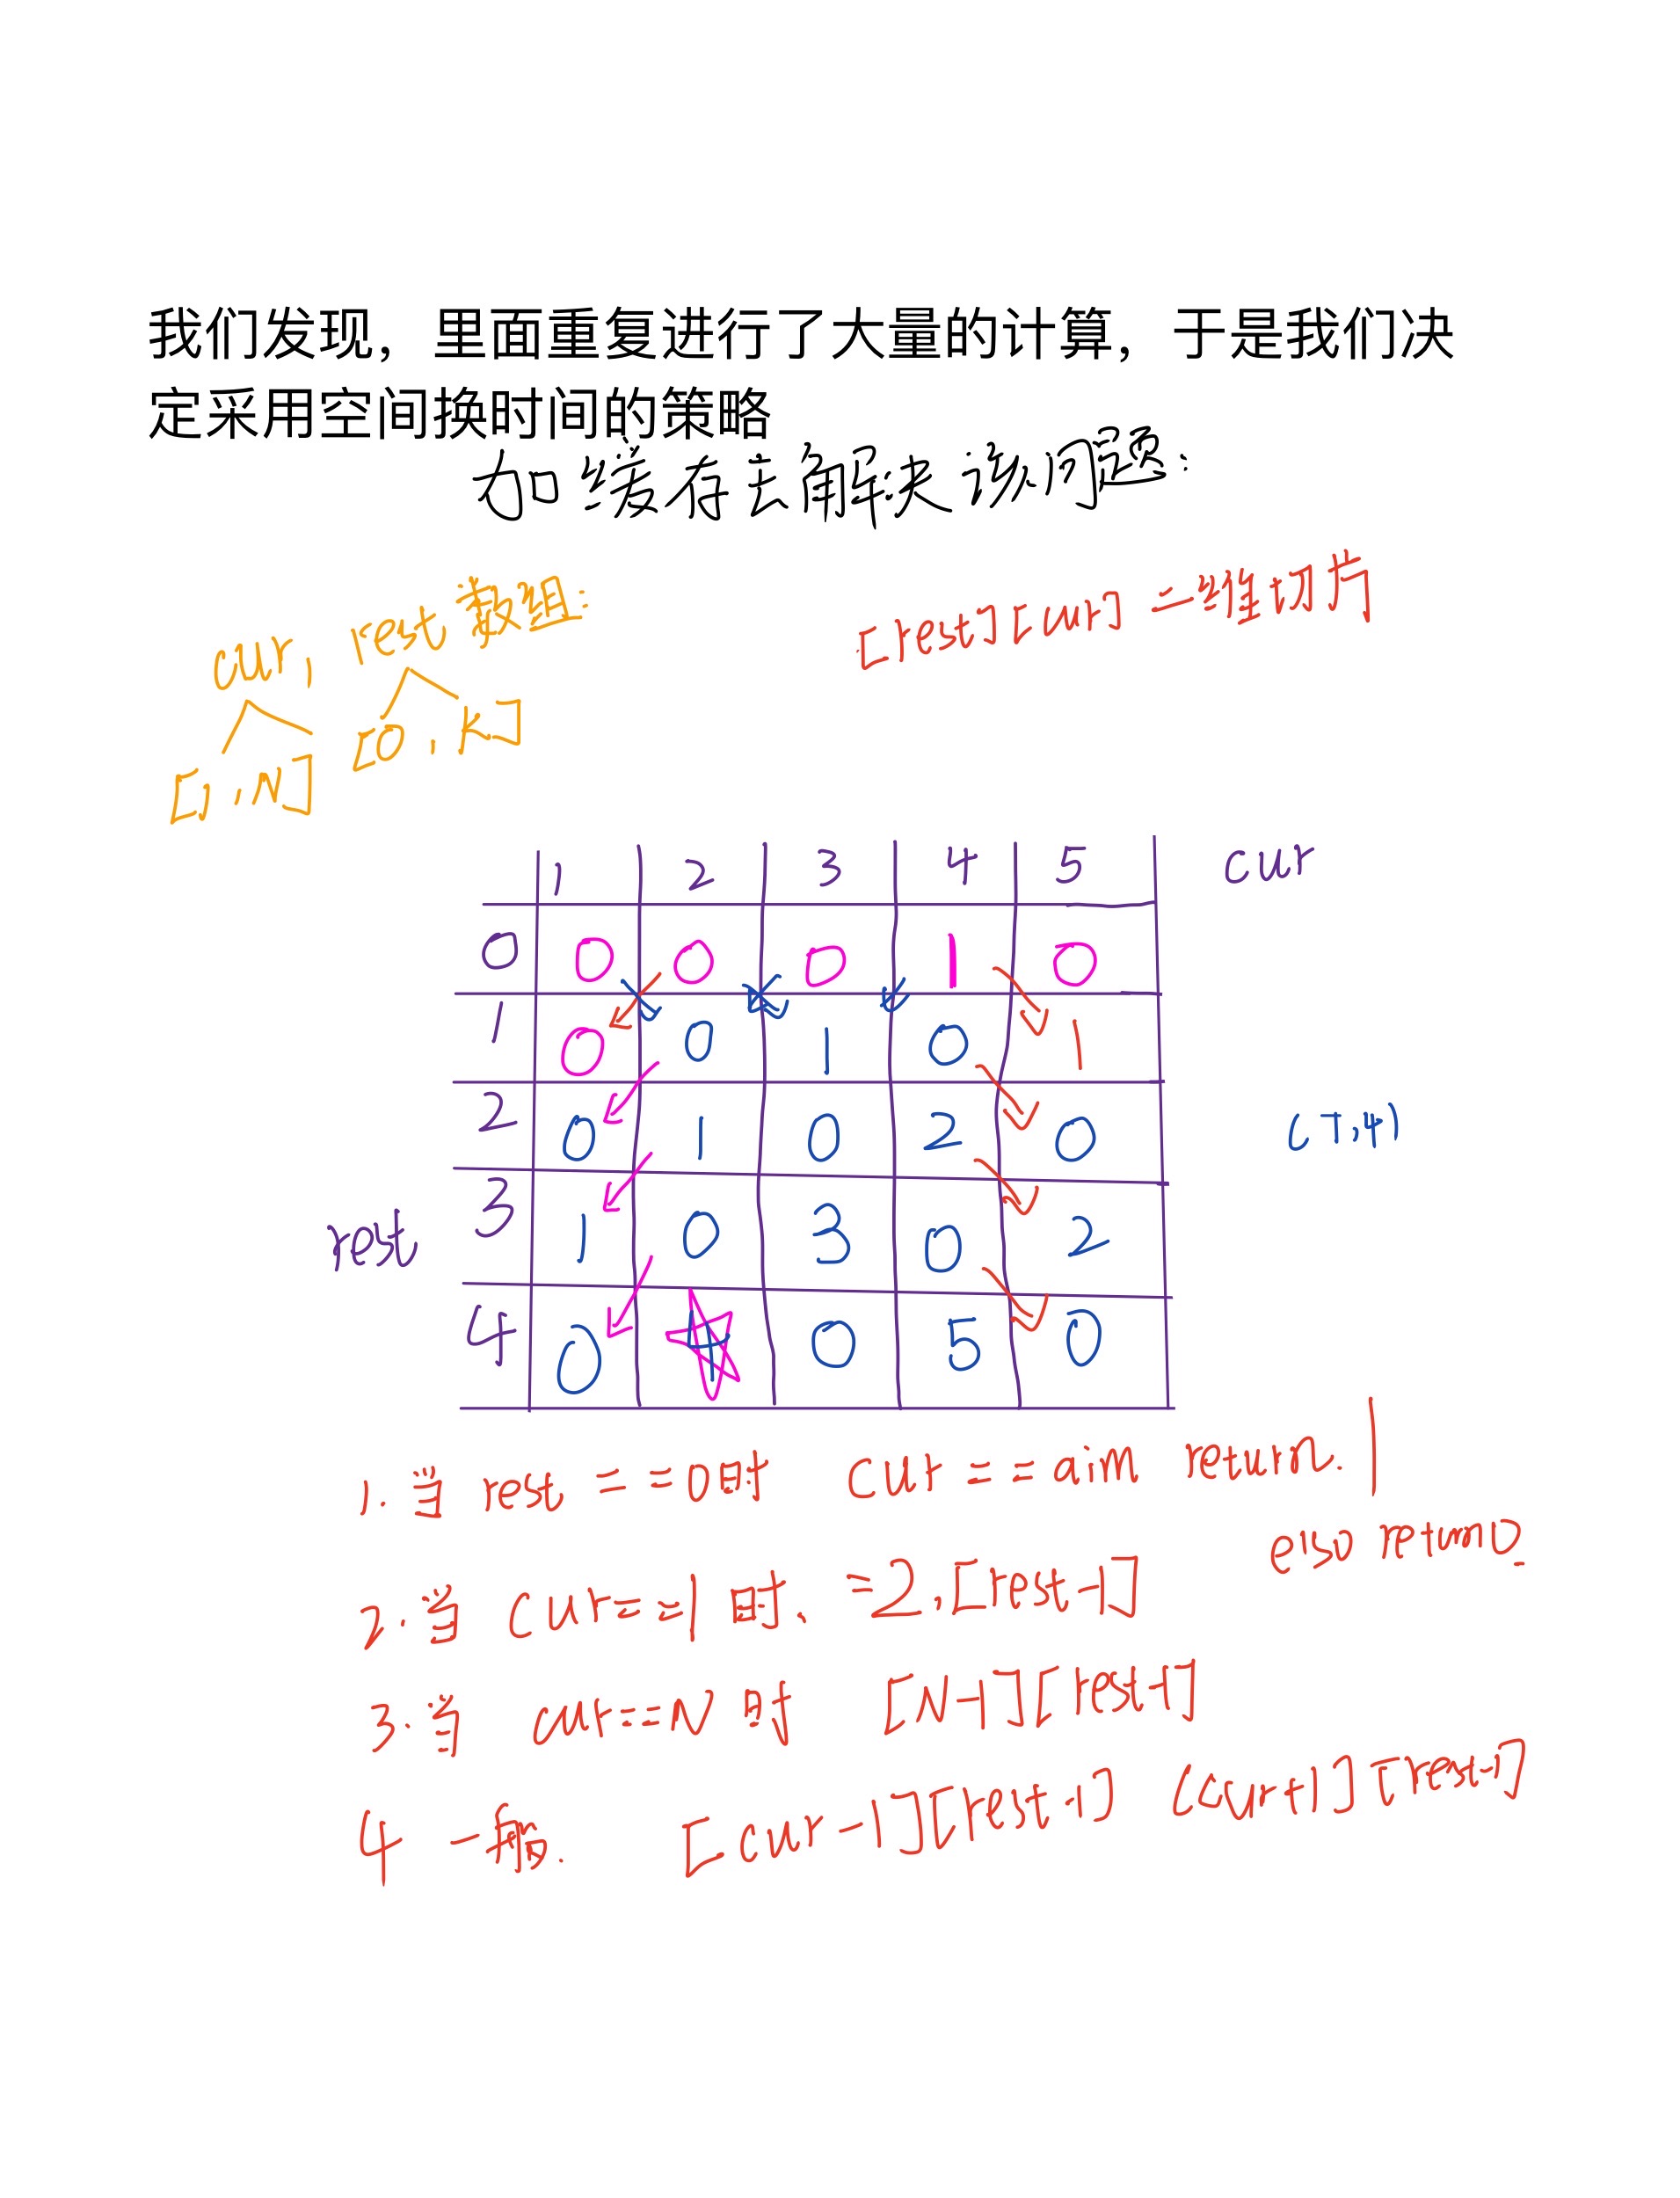 我们发现，里面重复进行了大量的计算，于是我们决
定采用空间换时间的策略
加缓存去解决该问题：
cur, rest 数组：
[rest][cur] 二维切片
[1, N] [0, K]
1 2 3 4 5 cur
0 0 0 0 1 0
1 0 0 1 0 1
2 0 1 0 2 0
(T,4)
3 1 0 3 0 2
rest
4 0 4 0 5 0
1. 当 rest == 0时 cur == aim return 1
else return 0
2. 当 cur == 1 时. = 2,[rest-1]
3. 当 cur==N 时 [N-1][rest-1]
4 一般. [cur-1][rest-1] [cur+1][rest-1]